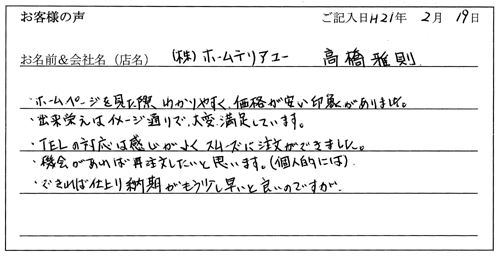 お客様の声 ご記入日H21年 2月 19日
お名前&会社名(店名) (株)ホームテリアユー 高橋雅則
・ホームページを見た際わかりやすく、価格が安い印象がありました。
・出来栄えはイメージ通りで、大変満足しています。
・TELの対応は感じがよくスムーズに注文ができました。
・機会があれば再注文したいと思います。(個人的には)
・できれば仕上り納期がもう少し早いと良いのですが